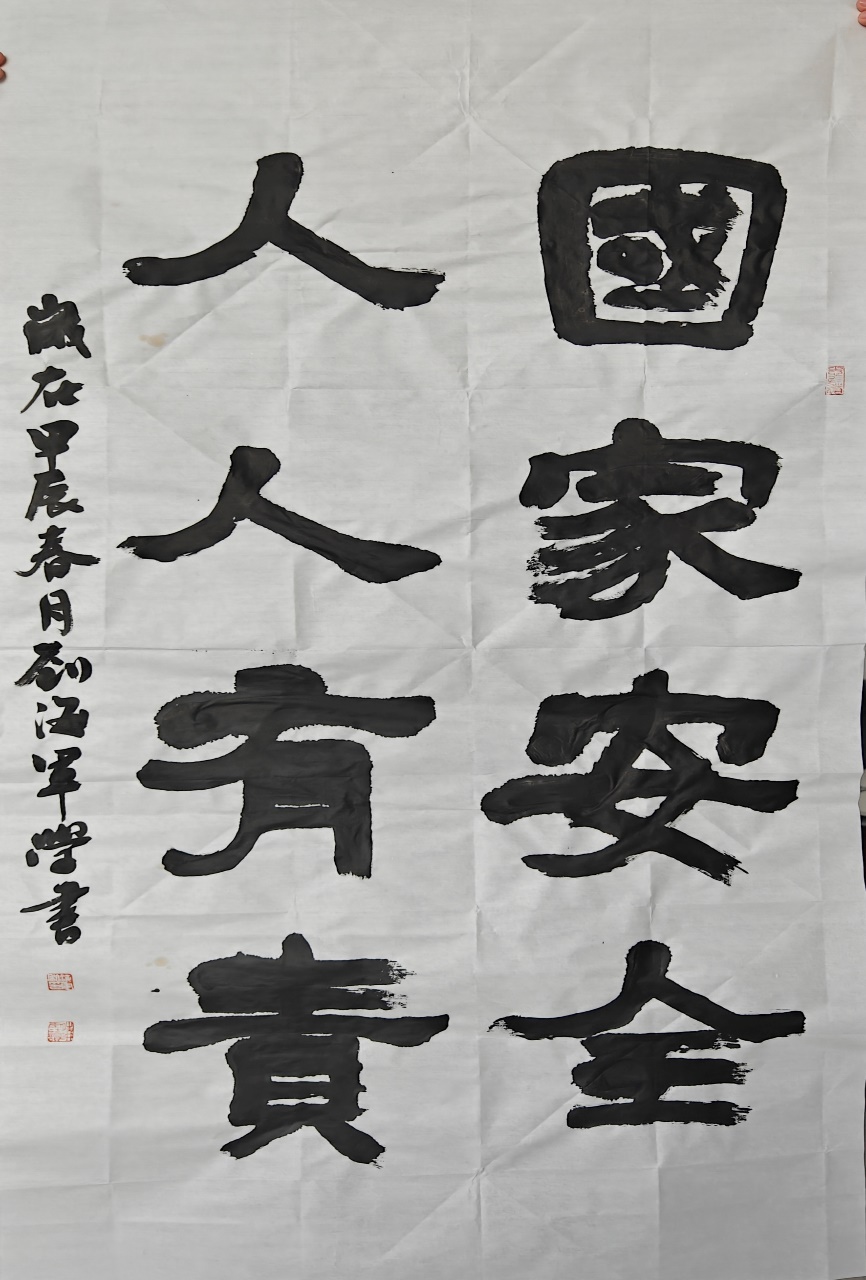 國家安全
人人有責
歲在甲辰春月劉海軍學書